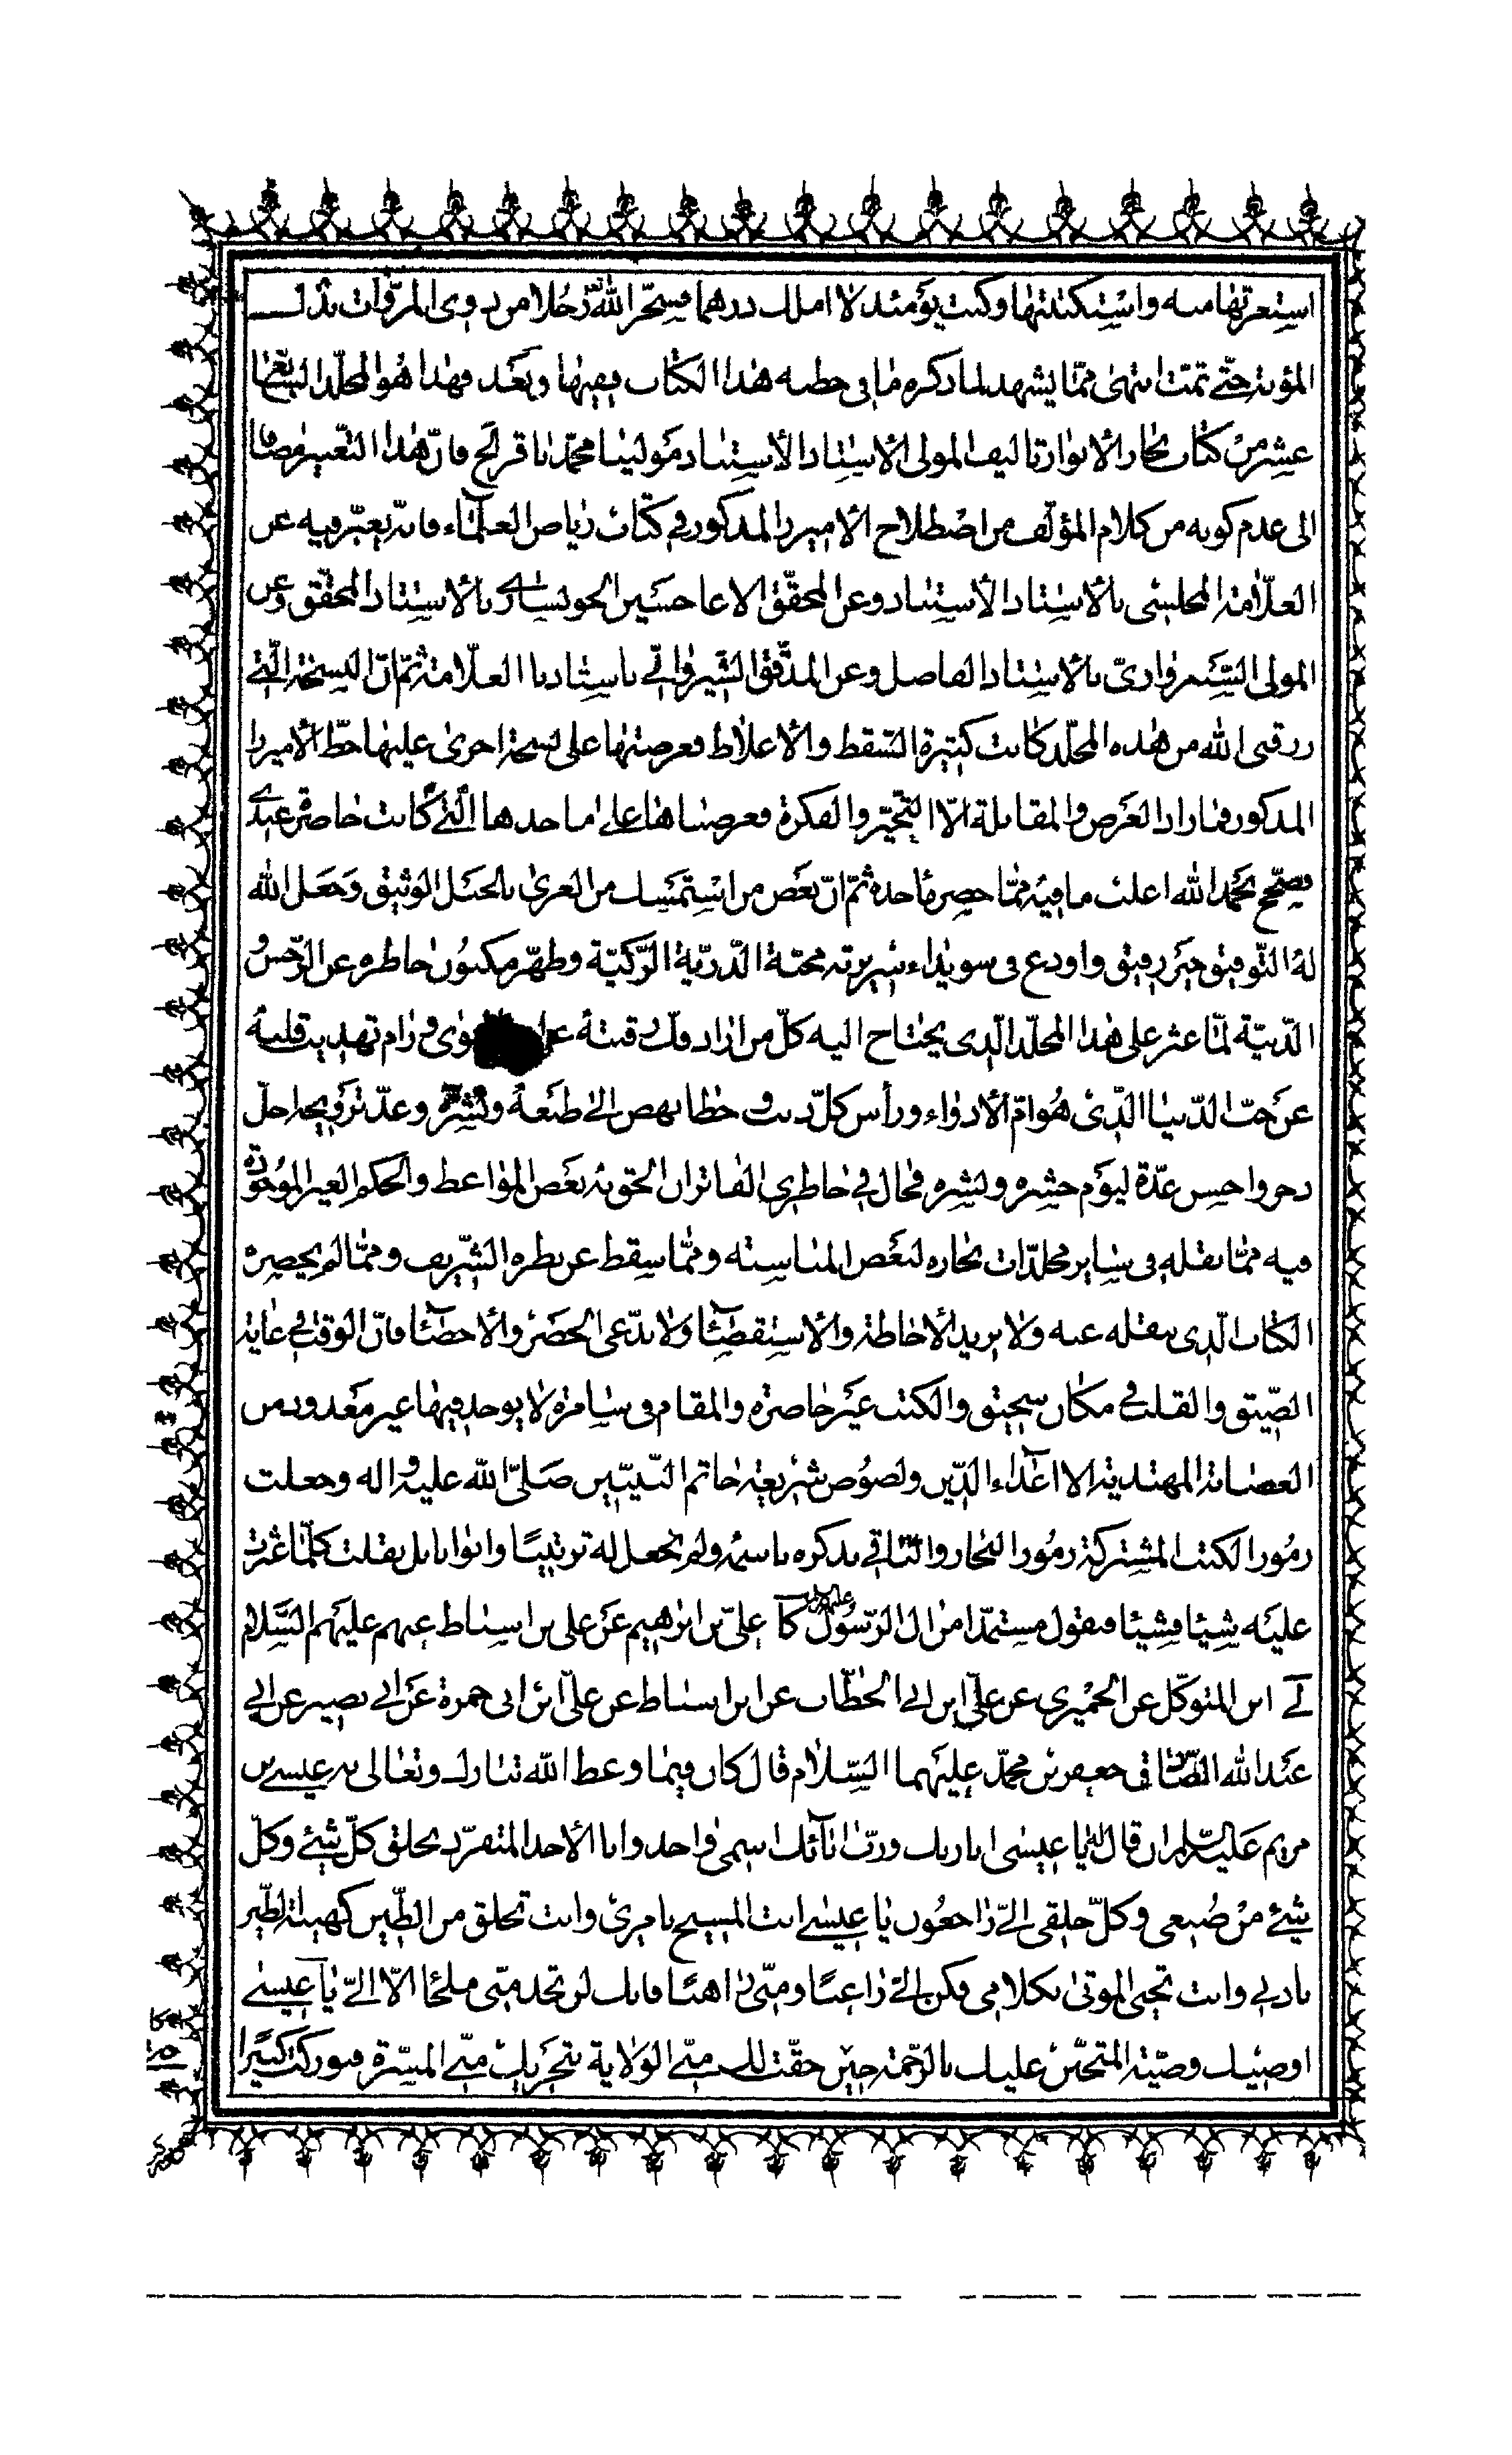 استعرتها منه واستكتبتها وكنت يومئذ لا املك درهما فسخّر الله رجلا من ذوى المروّات بذل
المؤنة حتّى تمّت انتهى ممّا يشهد لما ذكره ما فى خطبه هذا الكتاب بعينها وبعد فهذا هو المجلّد السابع
عشر من كتاب بحار الانوار تاليف المولى الاستاد الاستناد مولينا محمّد باقر الخ فانّ هذا التّعبير مضافا
الى عدم كونه من كلام المؤلّف من اصطلاح الاميرزا المذكور فى كتاب رياض العلماء فانّه يعبّر فيه عن
العلّامة المجلسى بالاستاد الاستناد وعن المحقّق الاغا حسين الخونسارى بالاستاد المحقّق وعن
المولى السّبزوارىّ بالاستاد الفاضل وعن المدقّق الشّيروانى باستادنا العلّامة ثمّ انّ النسخة الّتى
رزقنى الله من هذه المجلّد كانت كثيرة السّقط والاغلاط فعرضتها على نسخة اخرى عليها خطّ الاميرزا
المذكور فما زاد العرض والمقابلة الّا التّحيّر والفكرة فعرضناها على ماخذها الّتى كانت حاضرة عندى
فصحّ بحمد الله اغلب ما فيه ممّا حضر ماخذه ثمّ انّ بعض من استمسك من العرى بالحبل الوثيق وجعل الله
له التّوفيق خير رفيق واودع فى سويداء سريرته محبّة الذّريّة الزّكيّة وطهّر مكنون خاطره عن الرّجس و
الدّنيّة لمّا عثر على هذا المجلّد الّذى يحتاج اليه كلّ من اراد فكّ رقبته عن ورام تهذيب قلبه
عن حبّ الدّنيا الّذى هو امّ الادواء ورأس كلّ ذنب وخطا نهض الى طبعه ونشره وعدّ ترويجه اجلّ
ذخر واحسن عدّة ليوم حشره ونشره فخال فى خاطرى الفاتر ان الحق به بعض المواعظ والحكم الغير الموجودة
فيه ممّا نقله فى ساير مجلّدات بحاره لبعض المناسبة وممّا سقط عن نظره الشّريف وممّا لم يحضره
الكتاب الّذى ننقله عنه ولا نريد الاحاطة والاستقصاء ولا ندّعى الحصر والاحصاء فانّ الوقت فى غاية
الضّيق والقلب فى مكان سحيق والكتب غير حاضرة والمقام فى سامرة لا يوجد فيها غير معدود من
العصابة المهتدية الا اعداء الدّين ولصوص شريعة خاتم النّبيّين صلّى الله عليه واله وجعلت
رموز الكتب المشتركة رموز البحار والباقى بذكره باسمه ولم نجعل له ترتيبا وابوابا بل نقلت كلّما عثرت
عليه شيئا فشيئا فنقول مستمدّا من ال الرّسول كا علىّ بن ابرهيم عن على بن اسباط عنهم عليهم السّلام
لى ابن المتوكّل عن الحميرى عن علىّ ابن ابى الخطّاب عن ابن اسباط عن علىّ ابن ابى حمزة عن ابى بصير عن ابى
عبد الله الصّادق جعفر بن محمّد عليهما السّلام قال كان فيما وعظ الله تبارك وتعالى به عيسى بن
مريم عليه السّلم ان قال له يا عيسى انا ربك وربّ ابائك اسمى واحد وانا الاحد المتفرّد بخلق كلّ شىء وكلّ
شىء من صنعى وكلّ خلقى الىّ راجعون يا عيسى انت المسيح بامرى وانت تخلق من الطّين كهيئة الطّير
باذنى وانت تحيى الموتى بكلامى فكن الىّ راغبا ومنّى راهبا فانك لن تجد منّى ملجئا الّا الىّ يا عيسى
اوصيك وصيّة المتحنّن عليك بالرّحمة حين حقّت لك منّى الولاية بتحرّيك منّى المسرّة فبوركت كبيرا